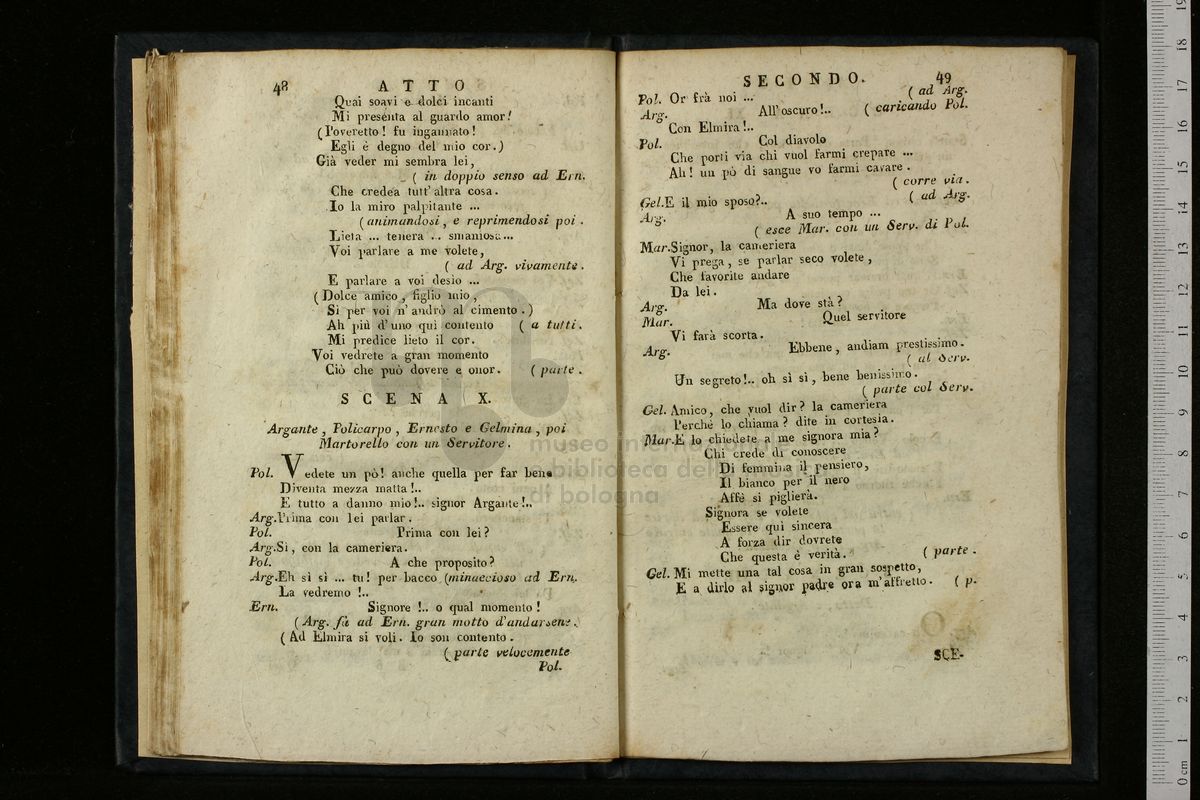 48 ATTO
Quai soavi e dolci incanti
Mi presenta al guardo amor!
(Poveretto! fu ingannato!
Egli è degno del mio cor.)
Già veder mi sembra lei,
( in doppio senso ad Ern.
Che credea tutt' altra cosa.
Io la miro palpitante ...
( animandosi, e reprimendosi poi .
Lieta ... tenera .. smaniosa...
Voi parlare a me volete,
( ad Arg. vivamente .
E parlare a voi desio ...
(Dolce amico, figlio mio,
Si per voi n' andrò al cimento .)
Ah più d' uno quì contento ( a tutti .
Mi predice lieto il cor.
Voi vedrete a gran momento
Ciò che può dovere e onor. ( parte .
SCENA X.
Argante, Policarpo, Ernesto e Gelmina, poi
Martorello con un Servitore.
Pol. Vedete un pò! anche quella per far bene
Diventa mezza matta!..
E tutto a danno mio!.. signor Argante!..
Arg. Prima con lei parlar.
Pol. Prima con lei?
Arg. Si, con la cameriera.
Pol. A che proposito?
Arg. Eh sì sì ... tu! per bacco (minaccioso ad Ern.
La vedremo !..
Ern. Signore !.. o qual momento !
( Arg. fà ad Ern. gran motto d'andarsene.)
( Ad Elmira si voli. Io son contento .
( parte velocemente
Pol.
SECONDO. 49
Pol. Or frà noi ... ( ad Arg.
Arg. All' oscuro!.. ( caricando Pol.
Con Elmira!..
Pol. Col diavolo
Che porti via chi vuol farmi crepare ...
Ah! un pò di sangue vo farmi cavare .
( corre via .
Gel. E il mio sposo?.. ( ad Arg.
Arg. A suo tempo ...
( esce Mar. con un Serv. di Pol.
Mar. Signor, la cameriera
Vi prega, se parlar seco volete,
Che favorite andare
Da lei.
Arg. Ma dove stà?
Mar. Quel servitore
Vi farà scorta.
Arg. Ebbene, andiam prestissimo.
( al Serv.
Un segreto!.. oh sì sì, bene benissimo.
( parte col Serv.
Gel. Amico, che vuol dir? la cameriera
Perchè lo chiama? dite in cortesia.
Mar. E lo chiedete a me signora mia?
Chi crede di conoscere
Di femmina il pensiero,
Il bianco per il nero
Affè si piglierà.
Signora se volete
Essere quì sincera
A forza dir dovrete
Che questa è verità. ( parte .
Gel. Mi mette una tal cosa in gran sospetto,
E a dirlo al signor padre ora m'affretto. ( p.
SCE-
museo internazionale
e biblioteca della musica
di bologna
0 cm 1 2 3 4 5 6 7 8 9 10 11 12 13 14 15 16 17 18 19